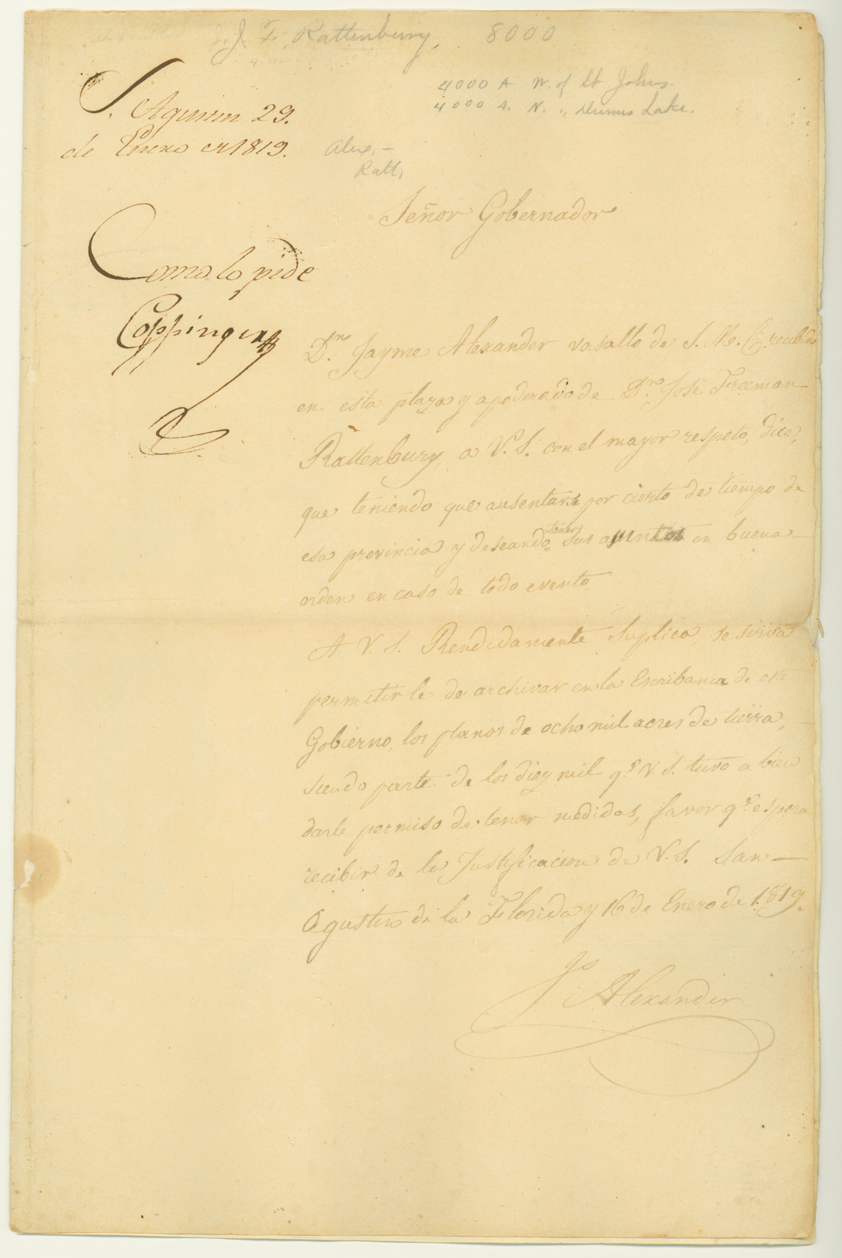 J. F. Rattenbury, 8000
4000 A W. of St Johns
4000 A. N. " Dunns Lake.
S. Agustin 29.
de Enero de 1819.
Alex,—
Ratt,
Señor Gobernador
Como lo pide
Coppinger
Dn. Jayme Alexander vasallo de S. M. C. recibido
en esta plaza y apoderado de Dn. José Freeman
Rattenbury, a V. S. con el mayor respeto, dice,
que teniendo que ausentarse por cierto de tiempo de
esa provincia y deseando tener sus asuntos en buena
orden en caso de todo evento
A V. S. Rendidamente Suplica se sirva
permitirle de archivar en la Escribania de este
Gobierno, los planos de ocho mil acres de tierra,
siendo parte de los diez mil qe. V. S. tuvo a bien
darle permiso de tener medidos, favor qe. espera
recibir de la Justificacion de V. S. San
Agustin de la Florida y 16 de Enero de 1819.
Js Alexander